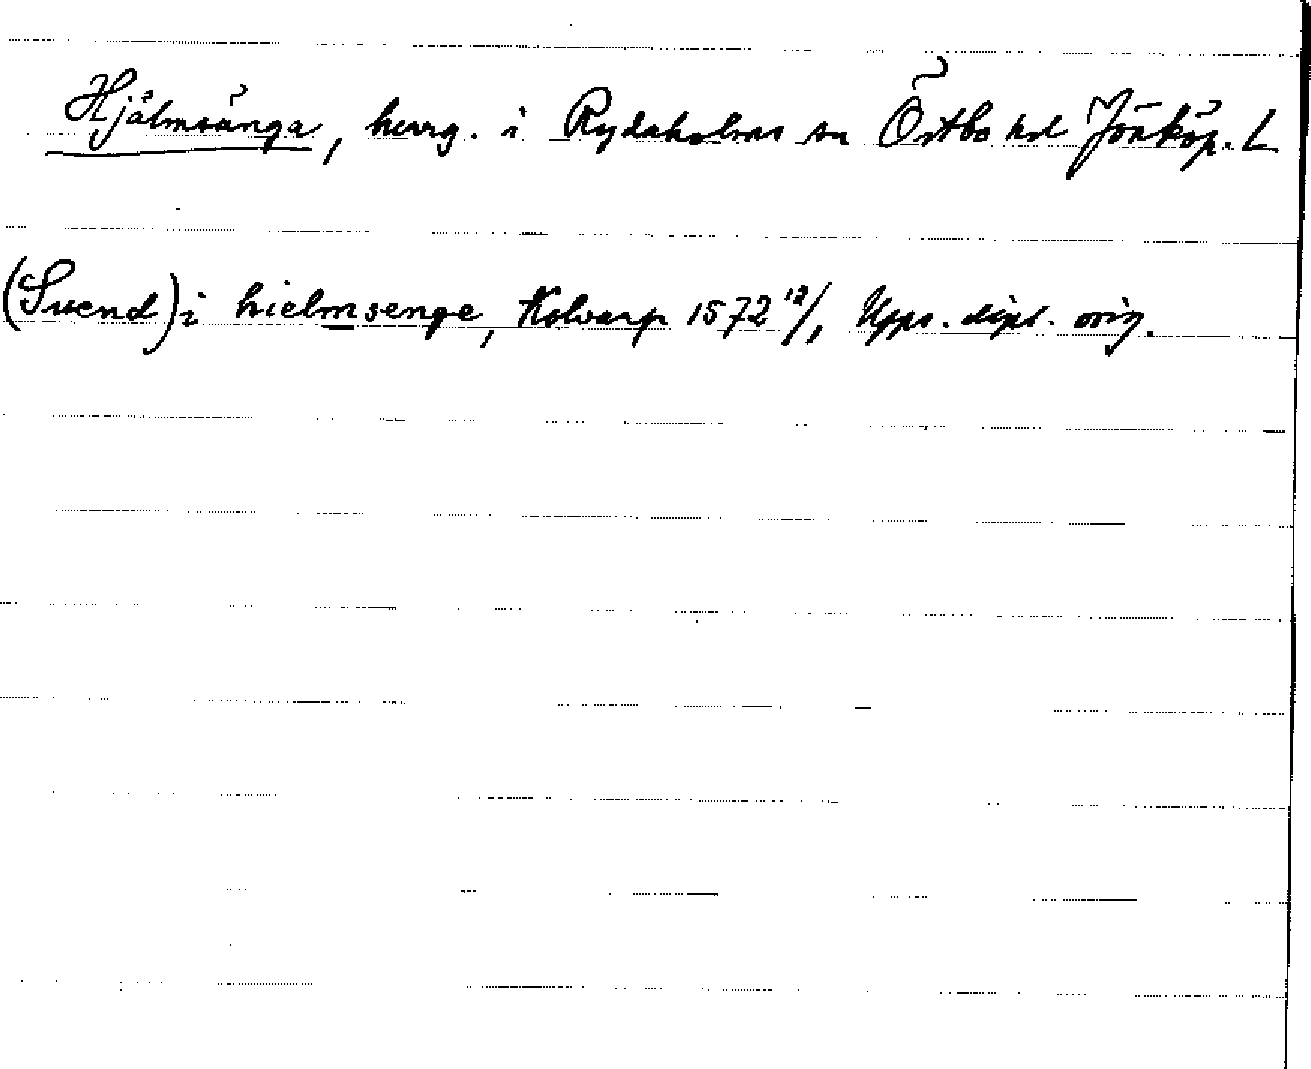 Hjälmsänga, herrg. i Rydaholms sn Östbo hd Jönköp. L
(Suend) i hielmsenge, Kolvarp 1572 12/, Upps. dipl. orig.